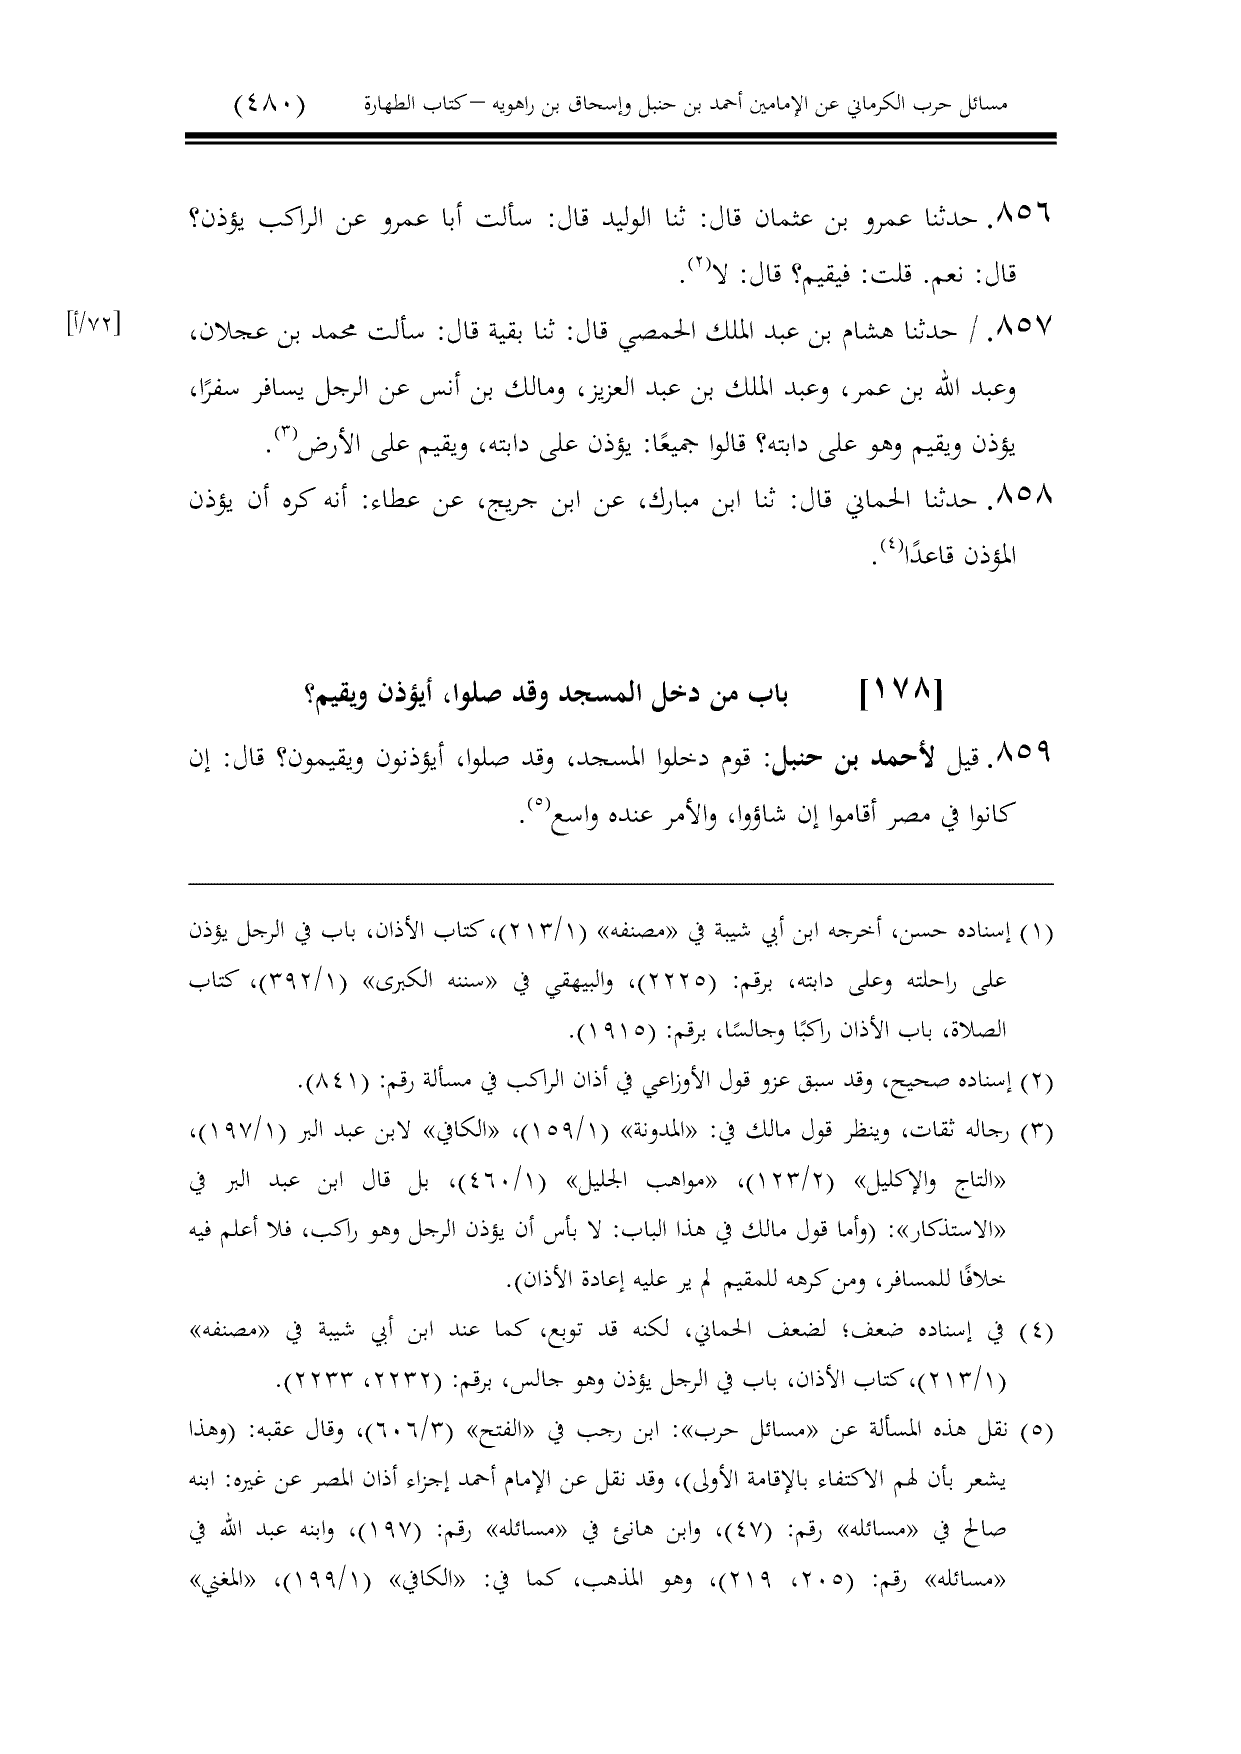 مسائل حرب الكرماني عن الإمامين أحمد بن حنبل وإسحاق بن راهويه – كتاب الطهارة (٤٨٠)
٨٥٦. حدثنا عمرو بن عثمان قال: ثنا الوليد قال: سألت أبا عمرو عن الراكب يؤذن؟
قال: نعم. قلت: فيقيم؟ قال: لا(٢).
٨٥٧. / حدثنا هشام بن عبد الملك الحمصي قال: ثنا بقية قال: سألت محمد بن عجلان،
[٧٢/أ]
وعبد الله بن عمر، وعبد الملك بن عبد العزيز، ومالك بن أنس عن الرجل يسافر سفرًا،
يؤذن ويقيم وهو على دابته؟ قالوا جميعًا: يؤذن على دابته، ويقيم على الأرض(٣).
٨٥٨. حدثنا الحماني قال: ثنا ابن مبارك، عن ابن جريج، عن عطاء: أنه كره أن يؤذن
المؤذن قاعدًا(٤).
[١٧٨] باب من دخل المسجد وقد صلوا، أيؤذن ويقيم؟
٨٥٩. قيل لأحمد بن حنبل: قوم دخلوا المسجد، وقد صلوا، أيؤذنون ويقيمون؟ قال: إن
كانوا في مصر أقاموا إن شاؤوا، والأمر عنده واسع(٥).
(١) إسناده حسن، أخرجه ابن أبي شيبة في «مصنفه» (٢١٣/١)، كتاب الأذان، باب في الرجل يؤذن
على راحلته وعلى دابته، برقم: (٢٢٢٥)، والبيهقي في «سننه الكبرى» (٣٩٢/١)، كتاب
الصلاة، باب الأذان راكبًا وجالسًا، برقم: (١٩١٥).
(٢) إسناده صحيح، وقد سبق عزو قول الأوزاعي في أذان الراكب في مسألة رقم: (٨٤١).
(٣) رجاله ثقات، وينظر قول مالك في: «المدونة» (١٥٩/١)، «الكافي» لابن عبد البر (١٩٧/١)،
«التاج والإكليل» (١٢٣/٢)، «مواهب الجليل» (٤٦٠/١)، بل قال ابن عبد البر في
«الاستذكار»: (وأما قول مالك في هذا الباب: لا بأس أن يؤذن الرجل وهو راكب، فلا أعلم فيه
خلافًا للمسافر، ومن كرهه للمقيم لم ير عليه إعادة الأذان).
(٤) في إسناده ضعف؛ لضعف الحماني، لكنه قد توبع، كما عند ابن أبي شيبة في «مصنفه»
(٢١٣/١)، كتاب الأذان، باب في الرجل يؤذن وهو جالس، برقم: (٢٢٣٢، ٢٢٣٣).
(٥) نقل هذه المسألة عن «مسائل حرب»: ابن رجب في «الفتح» (٦٠٦/٣)، وقال عقبه: (وهذا
يشعر بأن لهم الاكتفاء بالإقامة الأولى)، وقد نقل عن الإمام أحمد إجزاء أذان المصر عن غيره: ابنه
صالح في «مسائله» رقم: (٤٧)، وابن هانئ في «مسائله» رقم: (١٩٧)، وابنه عبد الله في
«مسائله» رقم: (٢٠٥، ٢١٩)، وهو المذهب، كما في: «الكافي» (١٩٩/١)، «المغني»